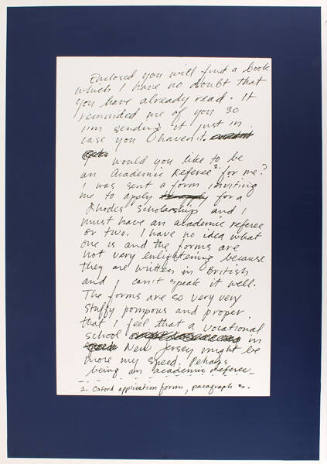 Enclosed you will find a book
which I have no doubt that
you have already read. It
reminded me of you so
I'm sending it just in
case you haven't.
would you like to be
an Academic Referee² for me?
I was sent a form inviting
me to apply for a
Rhodes Scholarship and I
must have an academic referee
or two. I have no idea what
one is and the forms are
not very enlightening because
they are written in British
and I can't speak it well.
The forms are so very very
stuffy pompous and proper
that I feel that a vocational
school in
New Jersey might be
more my speed. Perhaps
being an academic referee
2. Oxford application forms, paragraph